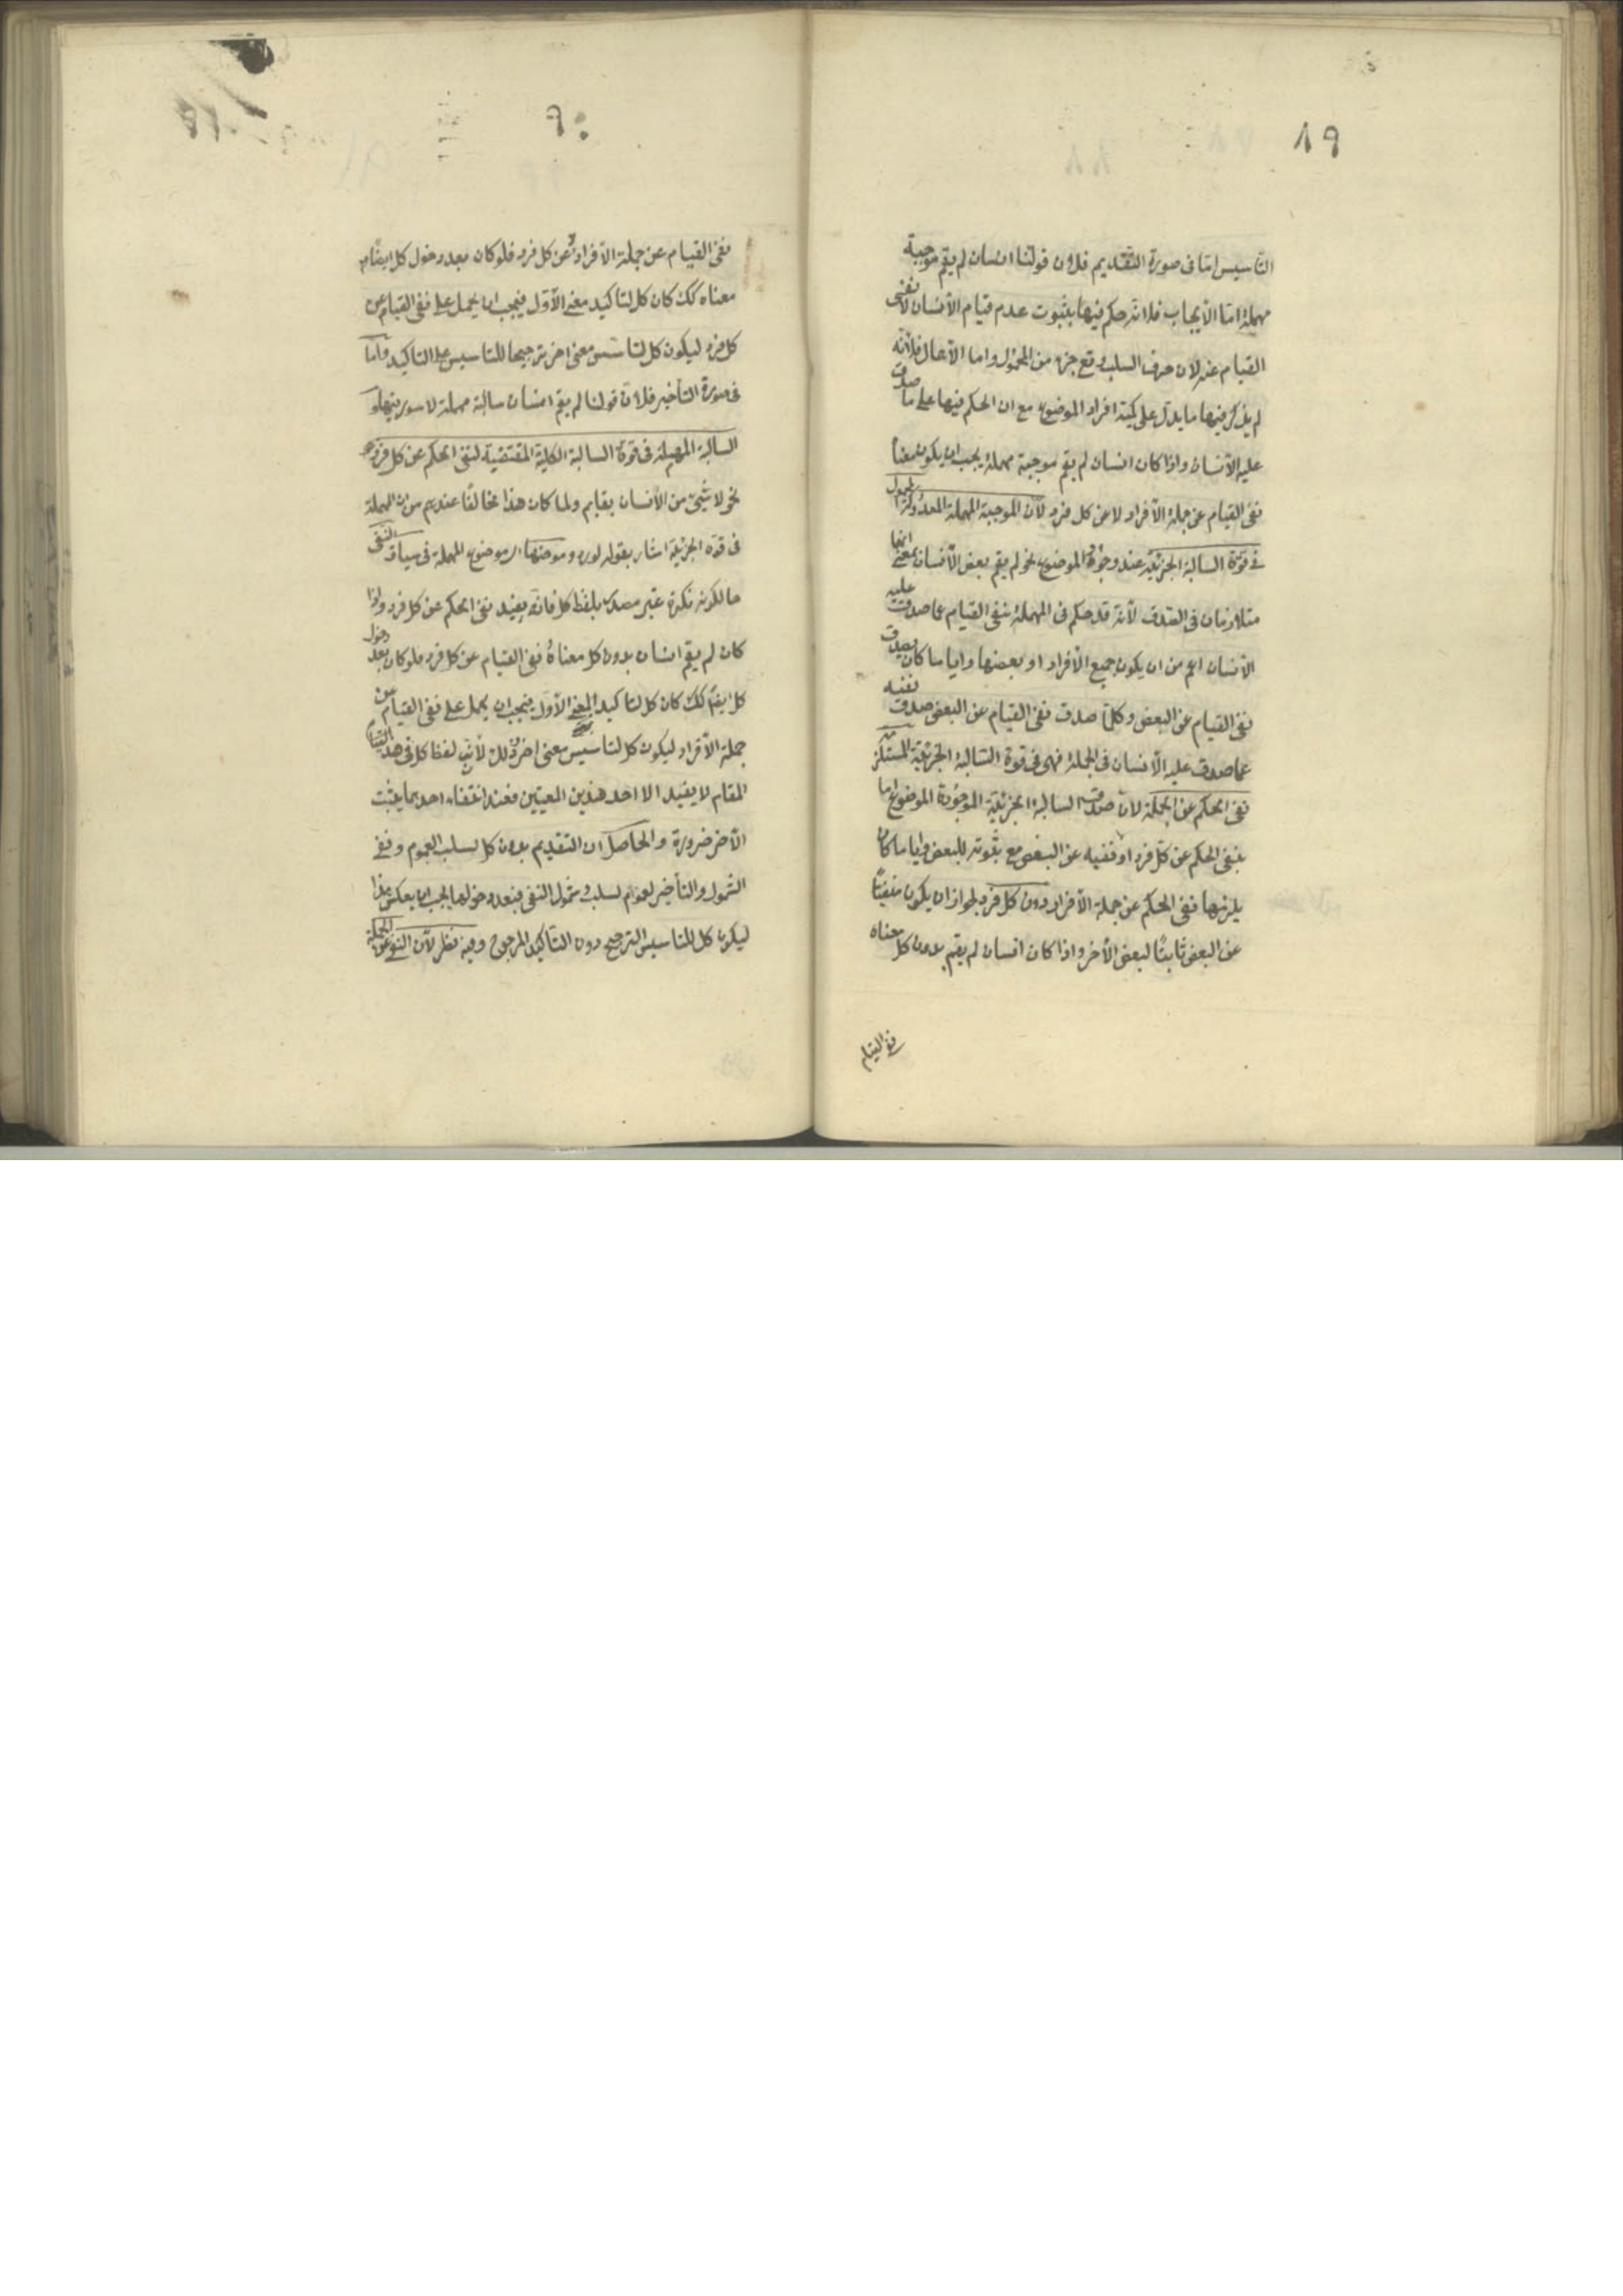 ٨٩
التأسيس اما فى صورة التقديم فلان قولنا انسان لم يقم موجبة
مهملة اما الأيجاب فلانه حكم فيها بثبوت عدم قيام الأنسان لا نفى
القيام عنه لان حرف السلب وقع جزء من المحمول واما الأهمال فلأنه
لم يذكر فيها ما يدل على كمية افراد الموضوع مع ان الحكم فيها على ما صدق
عليه الأنسان واذا كان انسان لم يقم موجبة مهملة يجب ان يكون معناه
نفى القيام عن جملة الأفراد لا عن كل فرد لأن الموجبة المهملة المعدولة المحمول
فى قوة السالبة الجزئية عند وجود الموضوع نحو لم يقم بعض الأنسان بمعنى انهما
متلازمان فى الصدق لأنه قد حكم فى المهملة بنفى القيام عما صدق عليه
الأنسان اعم من ان يكون جميع الأفراد او بعضها وايا ما كان يصدق
نفى القيام عن البعض وكلما صدق نفى القيام عن البعض صدق نفيه
عما صدق عليه الأنسان فى الجملة فهى فى قوة السالبة الجزئية المستلزمة
نفى الحكم عن الجملة لان صدق السالبة الجزئية الموجودة الموضوع اما
بنفى الحكم عن كل فرد او نفيه عن البعض مع ثبوته للبعض وايا ما كان
يلزمها نفى الحكم عن جملة الأفراد دون كل فرد لجواز ان يكون منفيًا
عن البعض ثابتًا لبعض الأخر واذا كان انسان لم يقم بدون كل معناه
نفى القيام
٩٠
نفى القيام عن جملة الأفراد لا عن كل فرد فلو كان بعد دخول كل ايضًا
معناه كك كان كل لتاكيد معنى الأول فيجب ان يحمل على نفى القيام عن
كل فرد ليكون كل لتأسيس معنى اخر ترجيحا للتاسيس على التاكيد واما
فى صورة التأخير فلان قولنا لم يقم انسان سالبة مهملة لا سور فيها و
السالبة المهملة فى قوة السالبة الكلية المقتضية لنفى الحكم عن كل فرد
نحو لا شىء من الأنسان بقايم ولما كان هذا مخالفًا عندهم من ان المهملة
فى قوة الجزئية اشار بقوله لورود موضعها اى موضوع المهملة فى سياق النفى
حال كونه نكرة غير مصدرة بلفظ كل فانه يفيد نفى الحكم عن كل فرد واذا
كان لم يقم انسان بدون كل معناه نفى القيام عن كل فرد فلو كان بعد دخول
كل ايضًا كك كان كل لتاكيد المعنى الأول فيجب ان يحمل على نفى القيام عن
جملة الأفراد ليكون كل لتأسيس معنى اخر وذلك لأن لفظ كل فى هذا
المقام لا يفيد الا احد هذين المعنيين فعند انتفاء احدهما يثبت
الأخر ضرورة والحاصل ان التقديم بدون كل لسلب العموم ونفى
الشمول والتأخير لعموم السلب وشمول النفى فبعد دخولها يجب ان يعكس هذا
ليكون كل للتاسيس الترجيح دون التأكيد المرجوح وفيه نظر لأن النفى عن الجملة